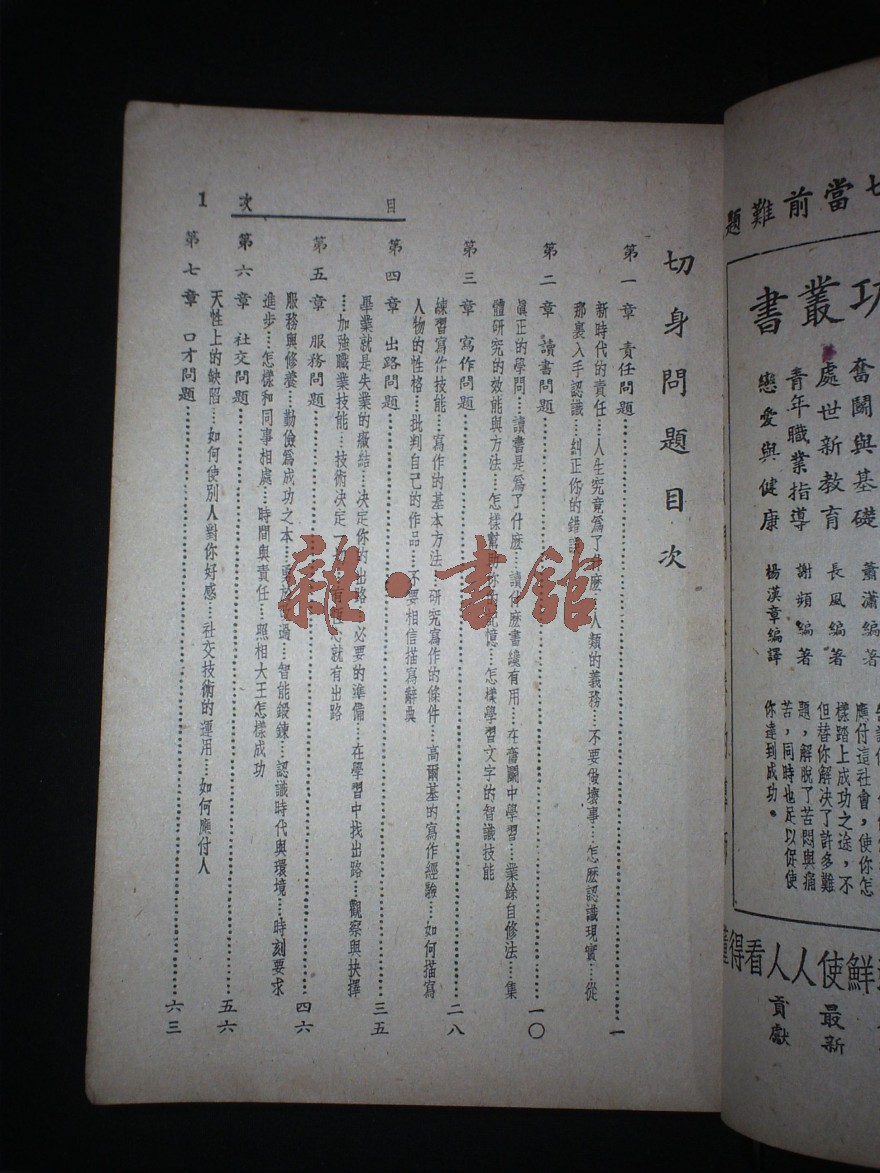 七當前難題
功叢書
奮鬭與基礎 蕭瀟編著
處世新教育 長風編著
青年職業指導 謝頻編著
戀愛與健康 楊漢章編譯
應付這社會，使你怎
樣踏上成功之途，不
但替你解決了許多難
題，解脫了苦悶與痛
苦，同時也足以促使
你達到成功。
鮮使人人看得懂
最新
貢獻
切身問題目次
目次 1
第一章 責任問題……一
新時代的責任……人生究竟爲了什麽……人類的義務……不要做壞事……怎麽認識現實……從
那裏入手認識……糾正你的錯誤
第二章 讀書問題……一〇
眞正的學問……讀書是爲了什麽……讀什麽書纔有用……在奮鬭中學習……業餘自修法……集
體研究的效能與方法……怎樣……記憶……怎樣學習文字的智識技能
第三章 寫作問題……二八
練習寫作技能……寫作的基本方法……研究寫作的條件……高爾基的寫作經驗……如何描寫
人物的性格……批判自己的作品……不要相信描寫辭典
第四章 出路問題……三五
畢業就是失業的癥結……決定你的出路……必要的準備……在學習中找出路……觀察與抉擇
……加強職業技能……技術決定……就有出路
第五章 服務問題……四六
服務與修養……勤儉爲成功之本……過……智能鍛鍊……認識時代與環境……時刻要求
進步……怎樣和同事相處……時間與責任……照相大王怎樣成功
第六章 社交問題……五六
天性上的缺陷……如何使別人對你好感……社交技術的運用……如何應付人
第七章 口才問題……六三
雜·書館